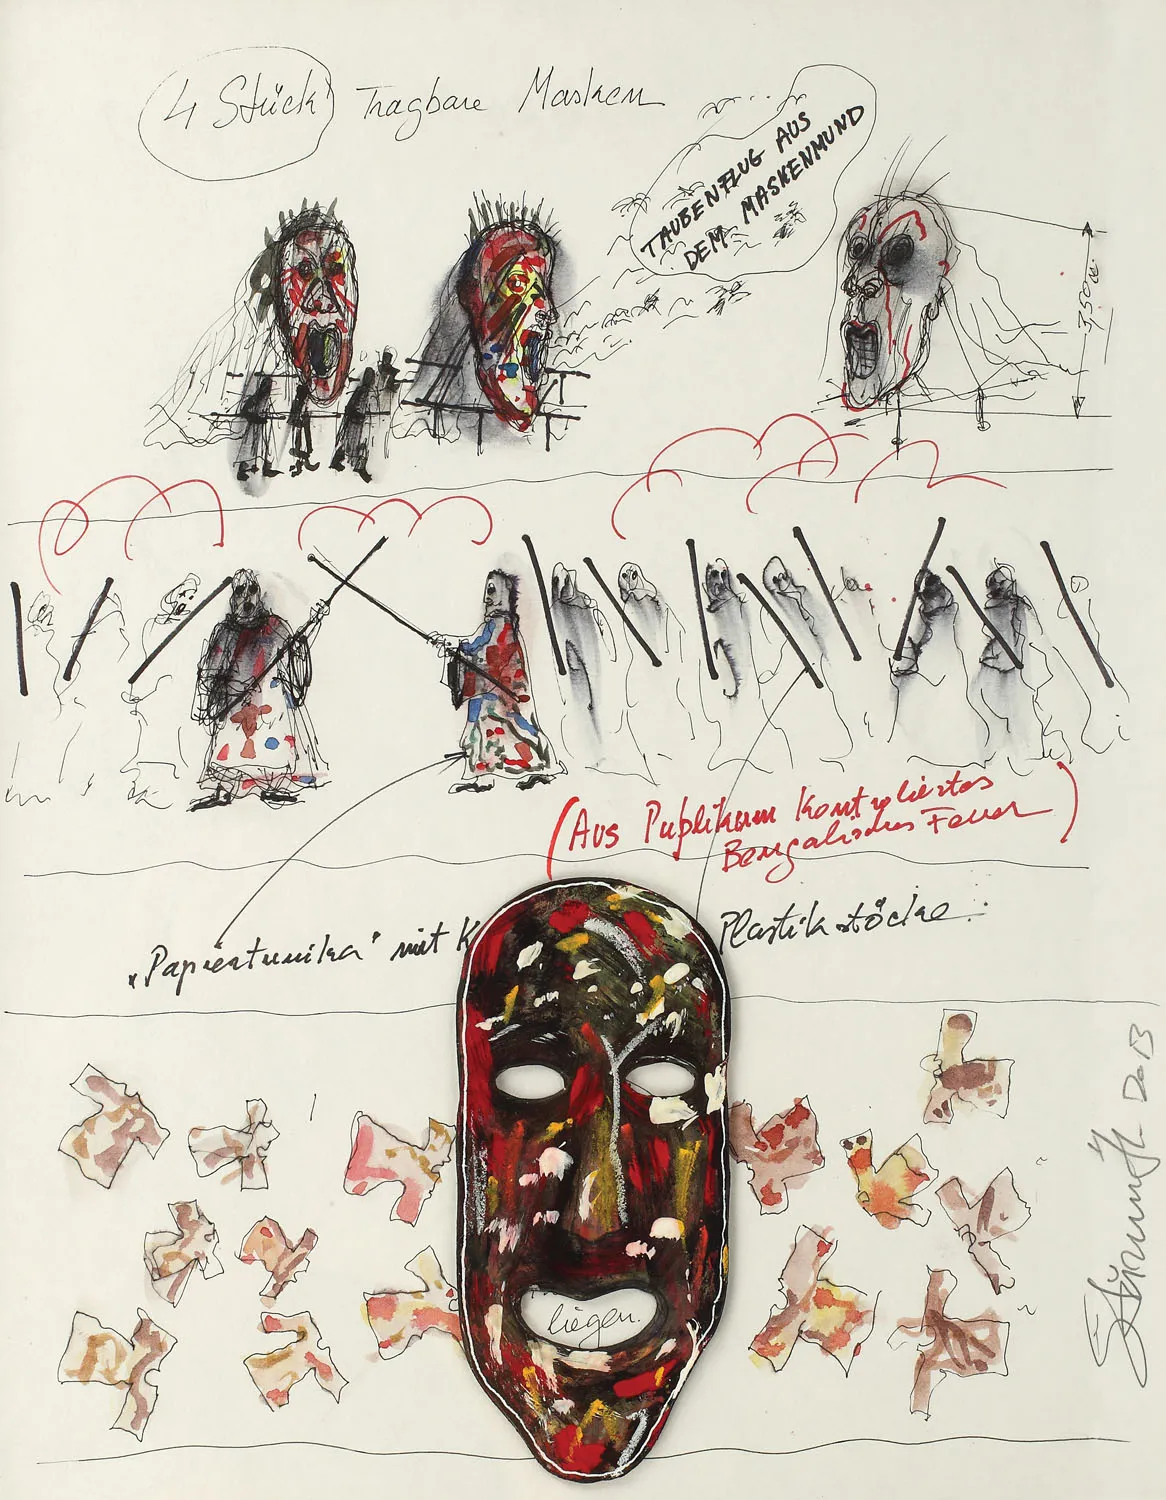 4 Stück Tragbare Masken
TAUBENFLUG AUS
DEM MASKENMUND
3,50
(Aus Puplikum Kontroliertes
Bengalisches Feuer)
"Papiertunika" mit K
Plastikstöcke
liegen.
2013